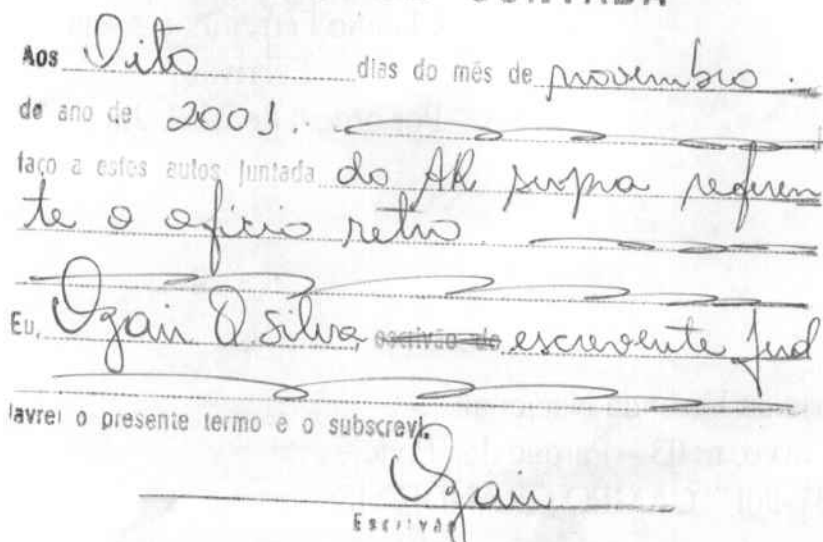 Aos Oito dias do mês de novembro.
do ano de 2001.
faço a estes autos juntada do AR supra referen
te o ofício retro
Eu, Ozair O Silva, escrivão do escrevente Jud
lavrei o presente termo e o subscrevi.
Ozair
Escrivão